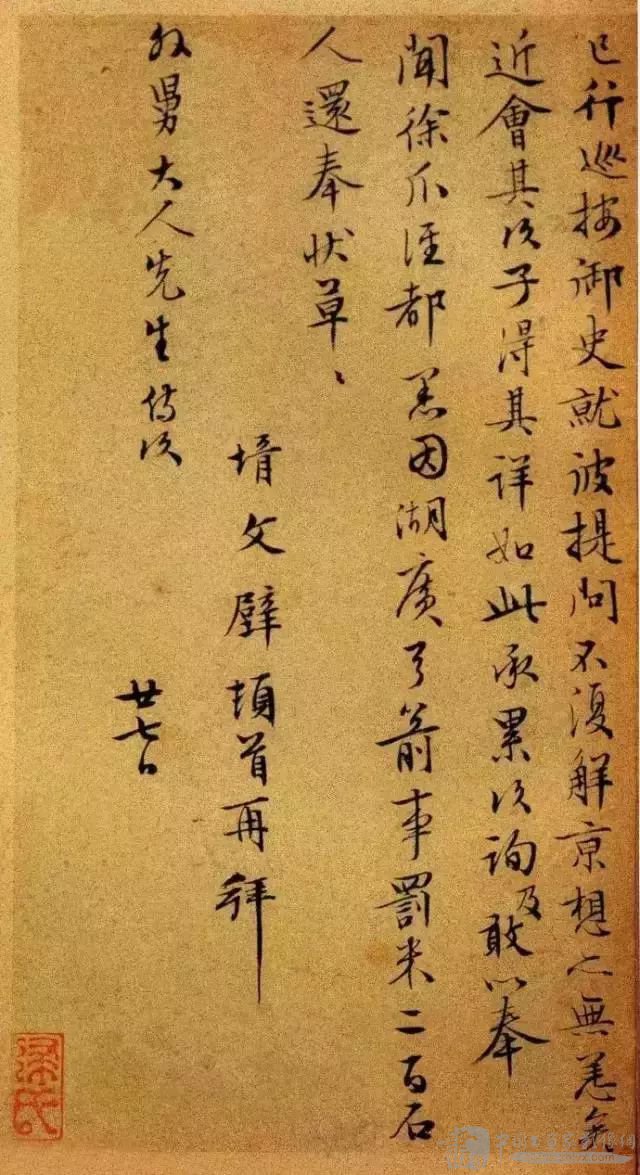 已行巡按御史就彼提问不復解京想無恙
近會其次子得其詳如此承累次詢及敢以奉
聞徐爪涇都憲因湖廣弓箭事罰米二百石
人還奉狀草〻
壻文壁頓首再拜
外舅大人先生侍次
廿七日
梁氏